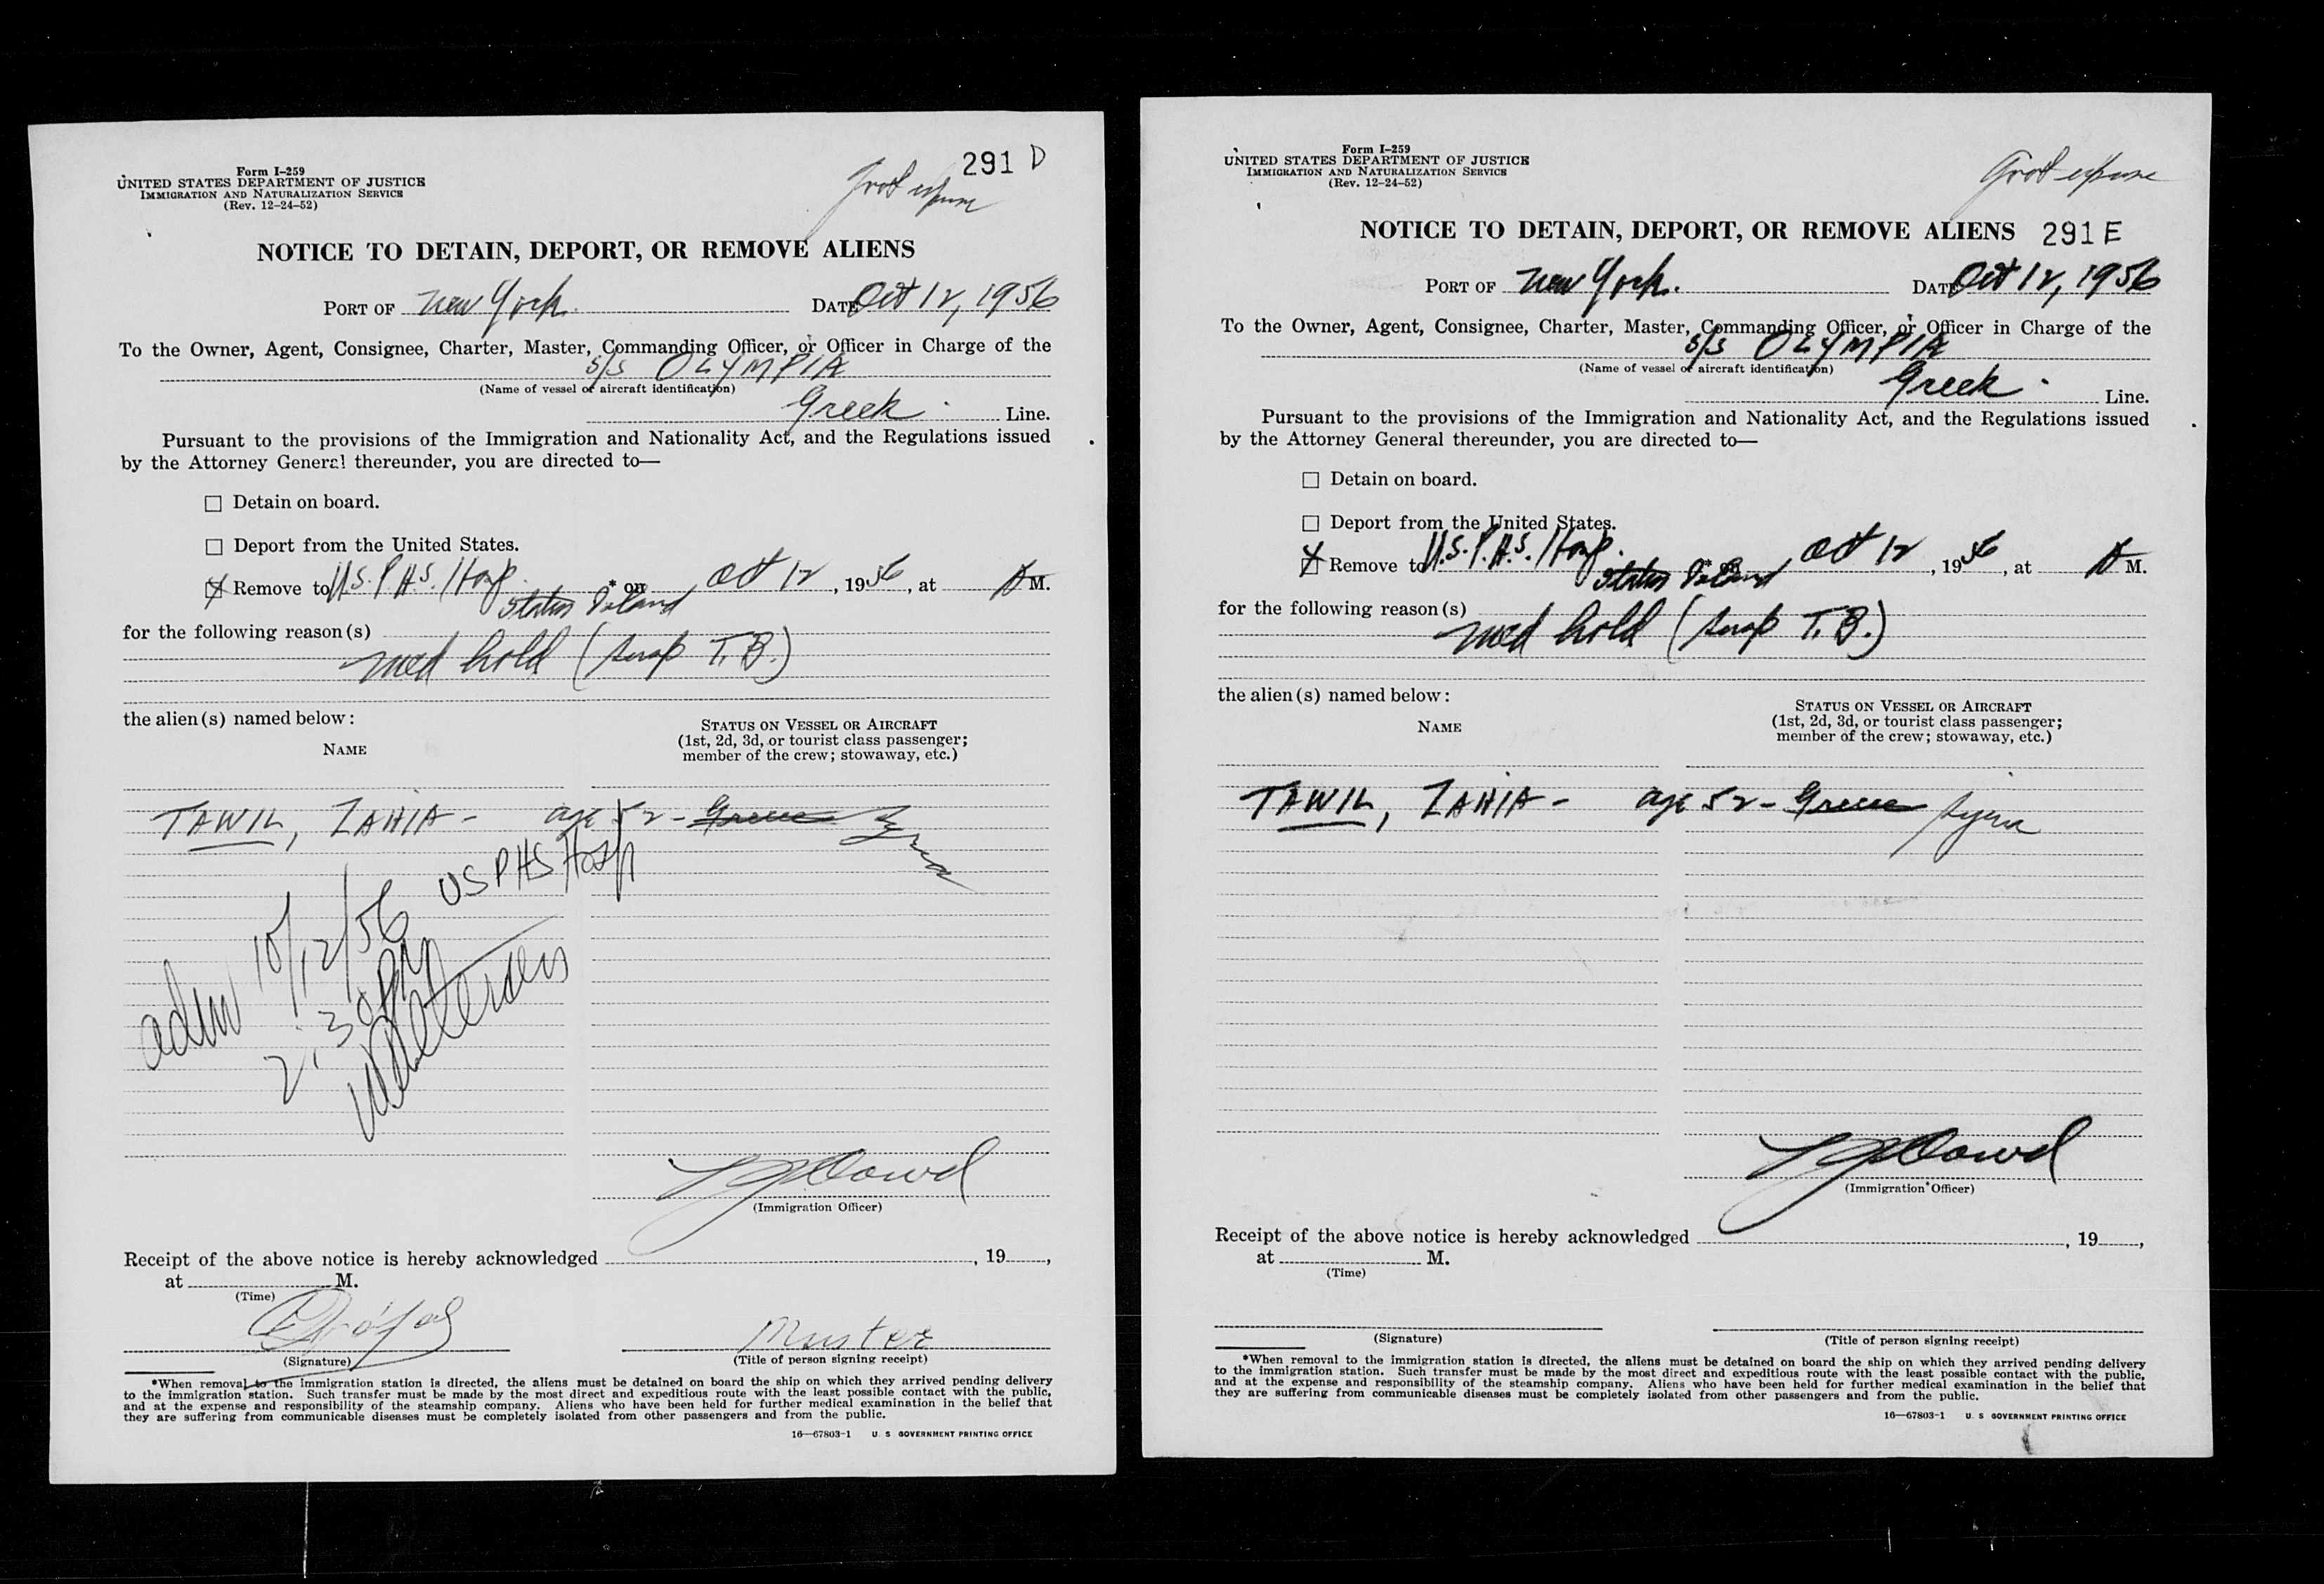 291 D
Govt expense
Form I-259
UNITED STATES DEPARTMENT OF JUSTICE
IMMIGRATION AND NATURALIZATION SERVICE
(Rev. 12-24-52)
NOTICE TO DETAIN, DEPORT, OR REMOVE ALIENS
PORT OF New York. DATE Oct 12, 1956
To the Owner, Agent, Consignee, Charter, Master, Commanding Officer, or Officer in Charge of the
S/S OLYMPIA
(Name of vessel or aircraft identification)
Greek Line.
Pursuant to the provisions of the Immigration and Nationality Act, and the Regulations issued
by the Attorney General thereunder, you are directed to—
☐ Detain on board.
☐ Deport from the United States.
☒ Remove to U.S.P.H.S. Hosp. Staten Island * on Oct 12, 1956, at A M.
for the following reason(s)
med hold (susp T.B.)
the alien(s) named below:
NAME
STATUS ON VESSEL OR AIRCRAFT
(1st, 2d, 3d, or tourist class passenger;
member of the crew; stowaway, etc.)
TAWIL, ZAHIA - age 52 - Greece Syria
USPHS Hosp
adm 10/12/56
2:30 PM
(Immigration Officer)
Receipt of the above notice is hereby acknowledged , 19 ,
at M.
(Time)
Master
(Signature)
(Title of person signing receipt)
*When removal to the immigration station is directed, the aliens must be detained on board the ship on which they arrived pending delivery
to the immigration station. Such transfer must be made by the most direct and expeditious route with the least possible contact with the public,
and at the expense and responsibility of the steamship company. Aliens who have been held for further medical examination in the belief that
they are suffering from communicable diseases must be completely isolated from other passengers and from the public.
16—67803-1 U. S GOVERNMENT PRINTING OFFICE
Govt expense
Form I-259
UNITED STATES DEPARTMENT OF JUSTICE
IMMIGRATION AND NATURALIZATION SERVICE
(Rev. 12-24-52)
NOTICE TO DETAIN, DEPORT, OR REMOVE ALIENS 291 E
PORT OF New York. DATE Oct 12, 1956
To the Owner, Agent, Consignee, Charter, Master, Commanding Officer, or Officer in Charge of the
S/S OLYMPIA
(Name of vessel or aircraft identification)
Greek Line.
Pursuant to the provisions of the Immigration and Nationality Act, and the Regulations issued
by the Attorney General thereunder, you are directed to—
☐ Detain on board.
☐ Deport from the United States.
☒ Remove to U.S.P.H.S. Hosp. Staten Island Oct 12, 1956, at A M.
for the following reason(s)
med hold (susp T.B.)
the alien(s) named below:
NAME
STATUS ON VESSEL OR AIRCRAFT
(1st, 2d, 3d, or tourist class passenger;
member of the crew; stowaway, etc.)
TAWIL, ZAHIA - age 52 - Greece Syria
(Immigration Officer)
Receipt of the above notice is hereby acknowledged , 19 ,
at M.
(Time)
(Signature)
(Title of person signing receipt)
*When removal to the immigration station is directed, the aliens must be detained on board the ship on which they arrived pending delivery
to the immigration station. Such transfer must be made by the most direct and expeditious route with the least possible contact with the public,
and at the expense and responsibility of the steamship company. Aliens who have been held for further medical examination in the belief that
they are suffering from communicable diseases must be completely isolated from other passengers and from the public.
16—67803-1 U. S GOVERNMENT PRINTING OFFICE